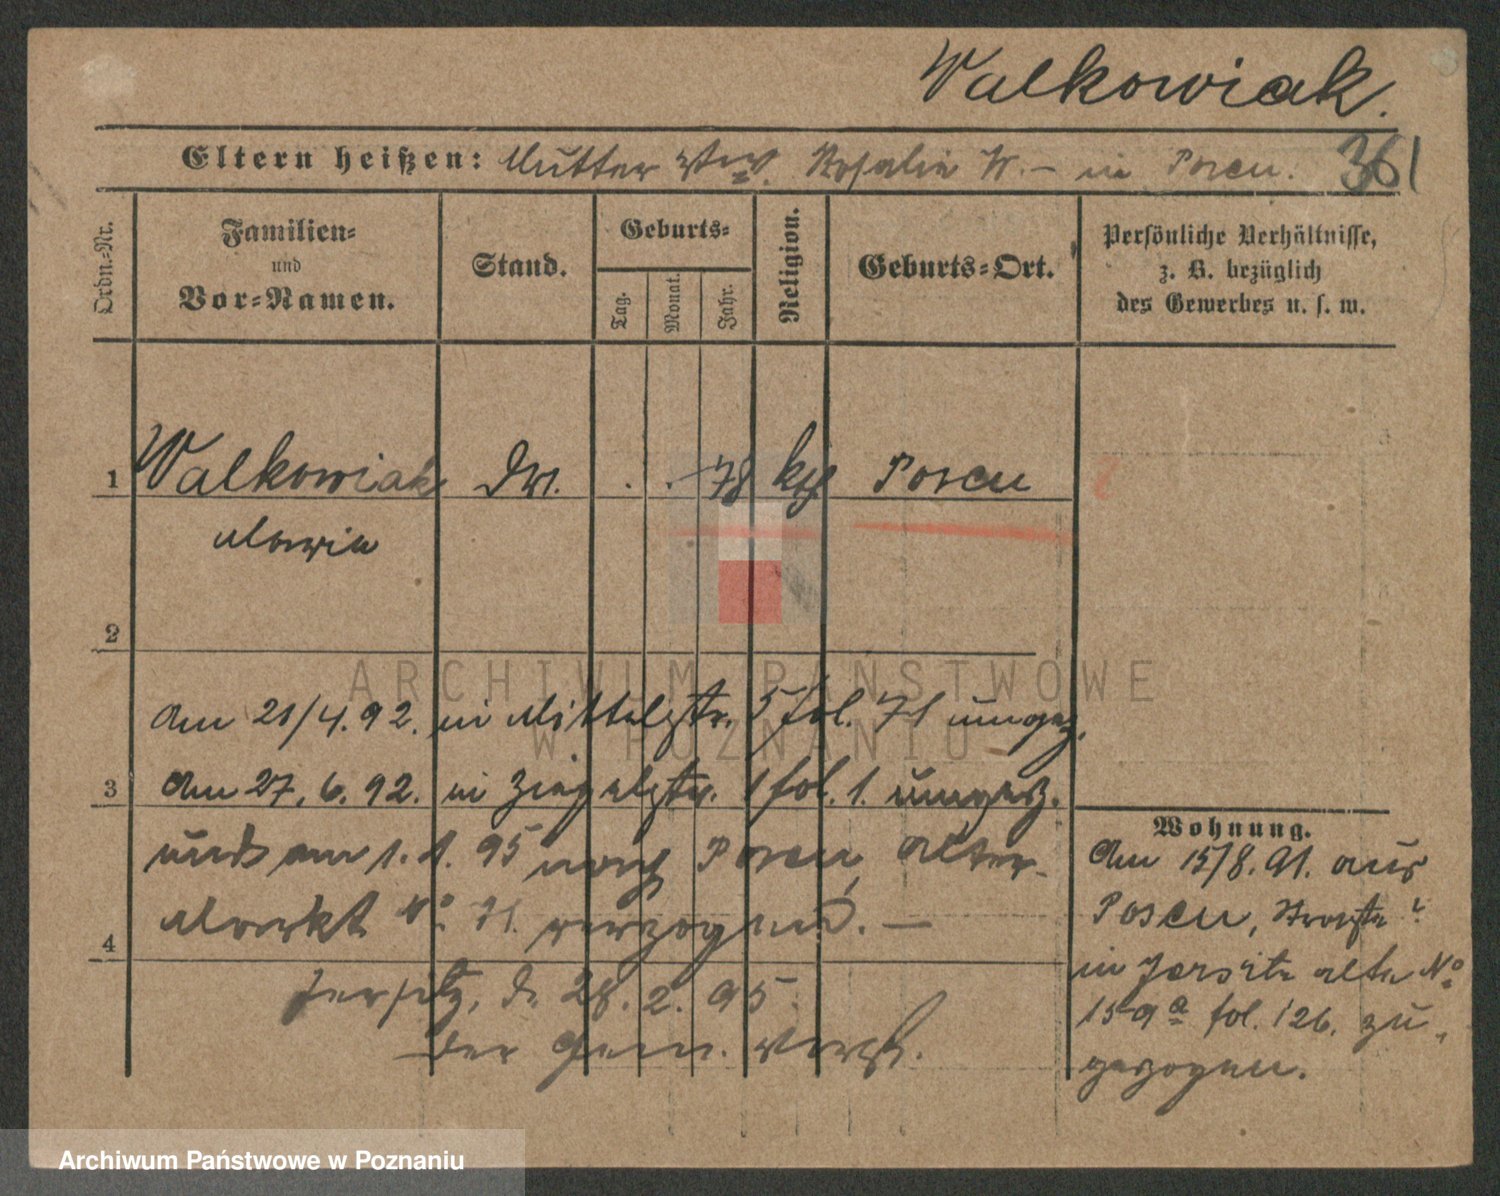 Walkowiak.
Eltern heißen: Mutter Ww. Rosalie W. – in Posen. 361
Ordn.-Nr.
Familien-
und
Vor-Namen.
Stand.
Geburts-
Tag.
Monat.
Jahr.
Religion.
Geburts-Ort.
Persönliche Verhältnisse,
z. B. bezüglich
des Gewerbes u. s. w.
1 Walkowiak . . 78 kth Posen
Maria
2
Am 21/4. 92. in Mittelstr. 5 fol. 71 umgez.
3 Am 27. 6. 92. in Ziegelstr. 1 fol. 1. umgez.
und am 1. 1. 95 nach Posen, Alter-
Markt No. 71. verzogen. —
4
Jersitz, d. 28. 2. 95.
Der Gem. Vorst.
Wohnung.
Am 15/8. 91. aus
Posen,
in Jersitz alte No.
159a fol. 126. zu-
gezogen.
ARCHIWUM PAŃSTWOWE
W POZNANIU
Archiwum Państwowe w Poznaniu